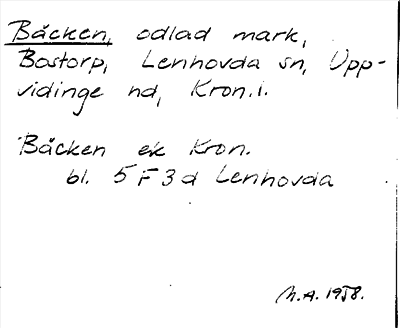 Bäcken, odlad mark,
Bostorp, Lenhovda sn, Upp-
vidinge hd, Kron.l.
Bäcken ek Kron.
bl. 5 F 3 d Lenhovda
M.A. 1958.